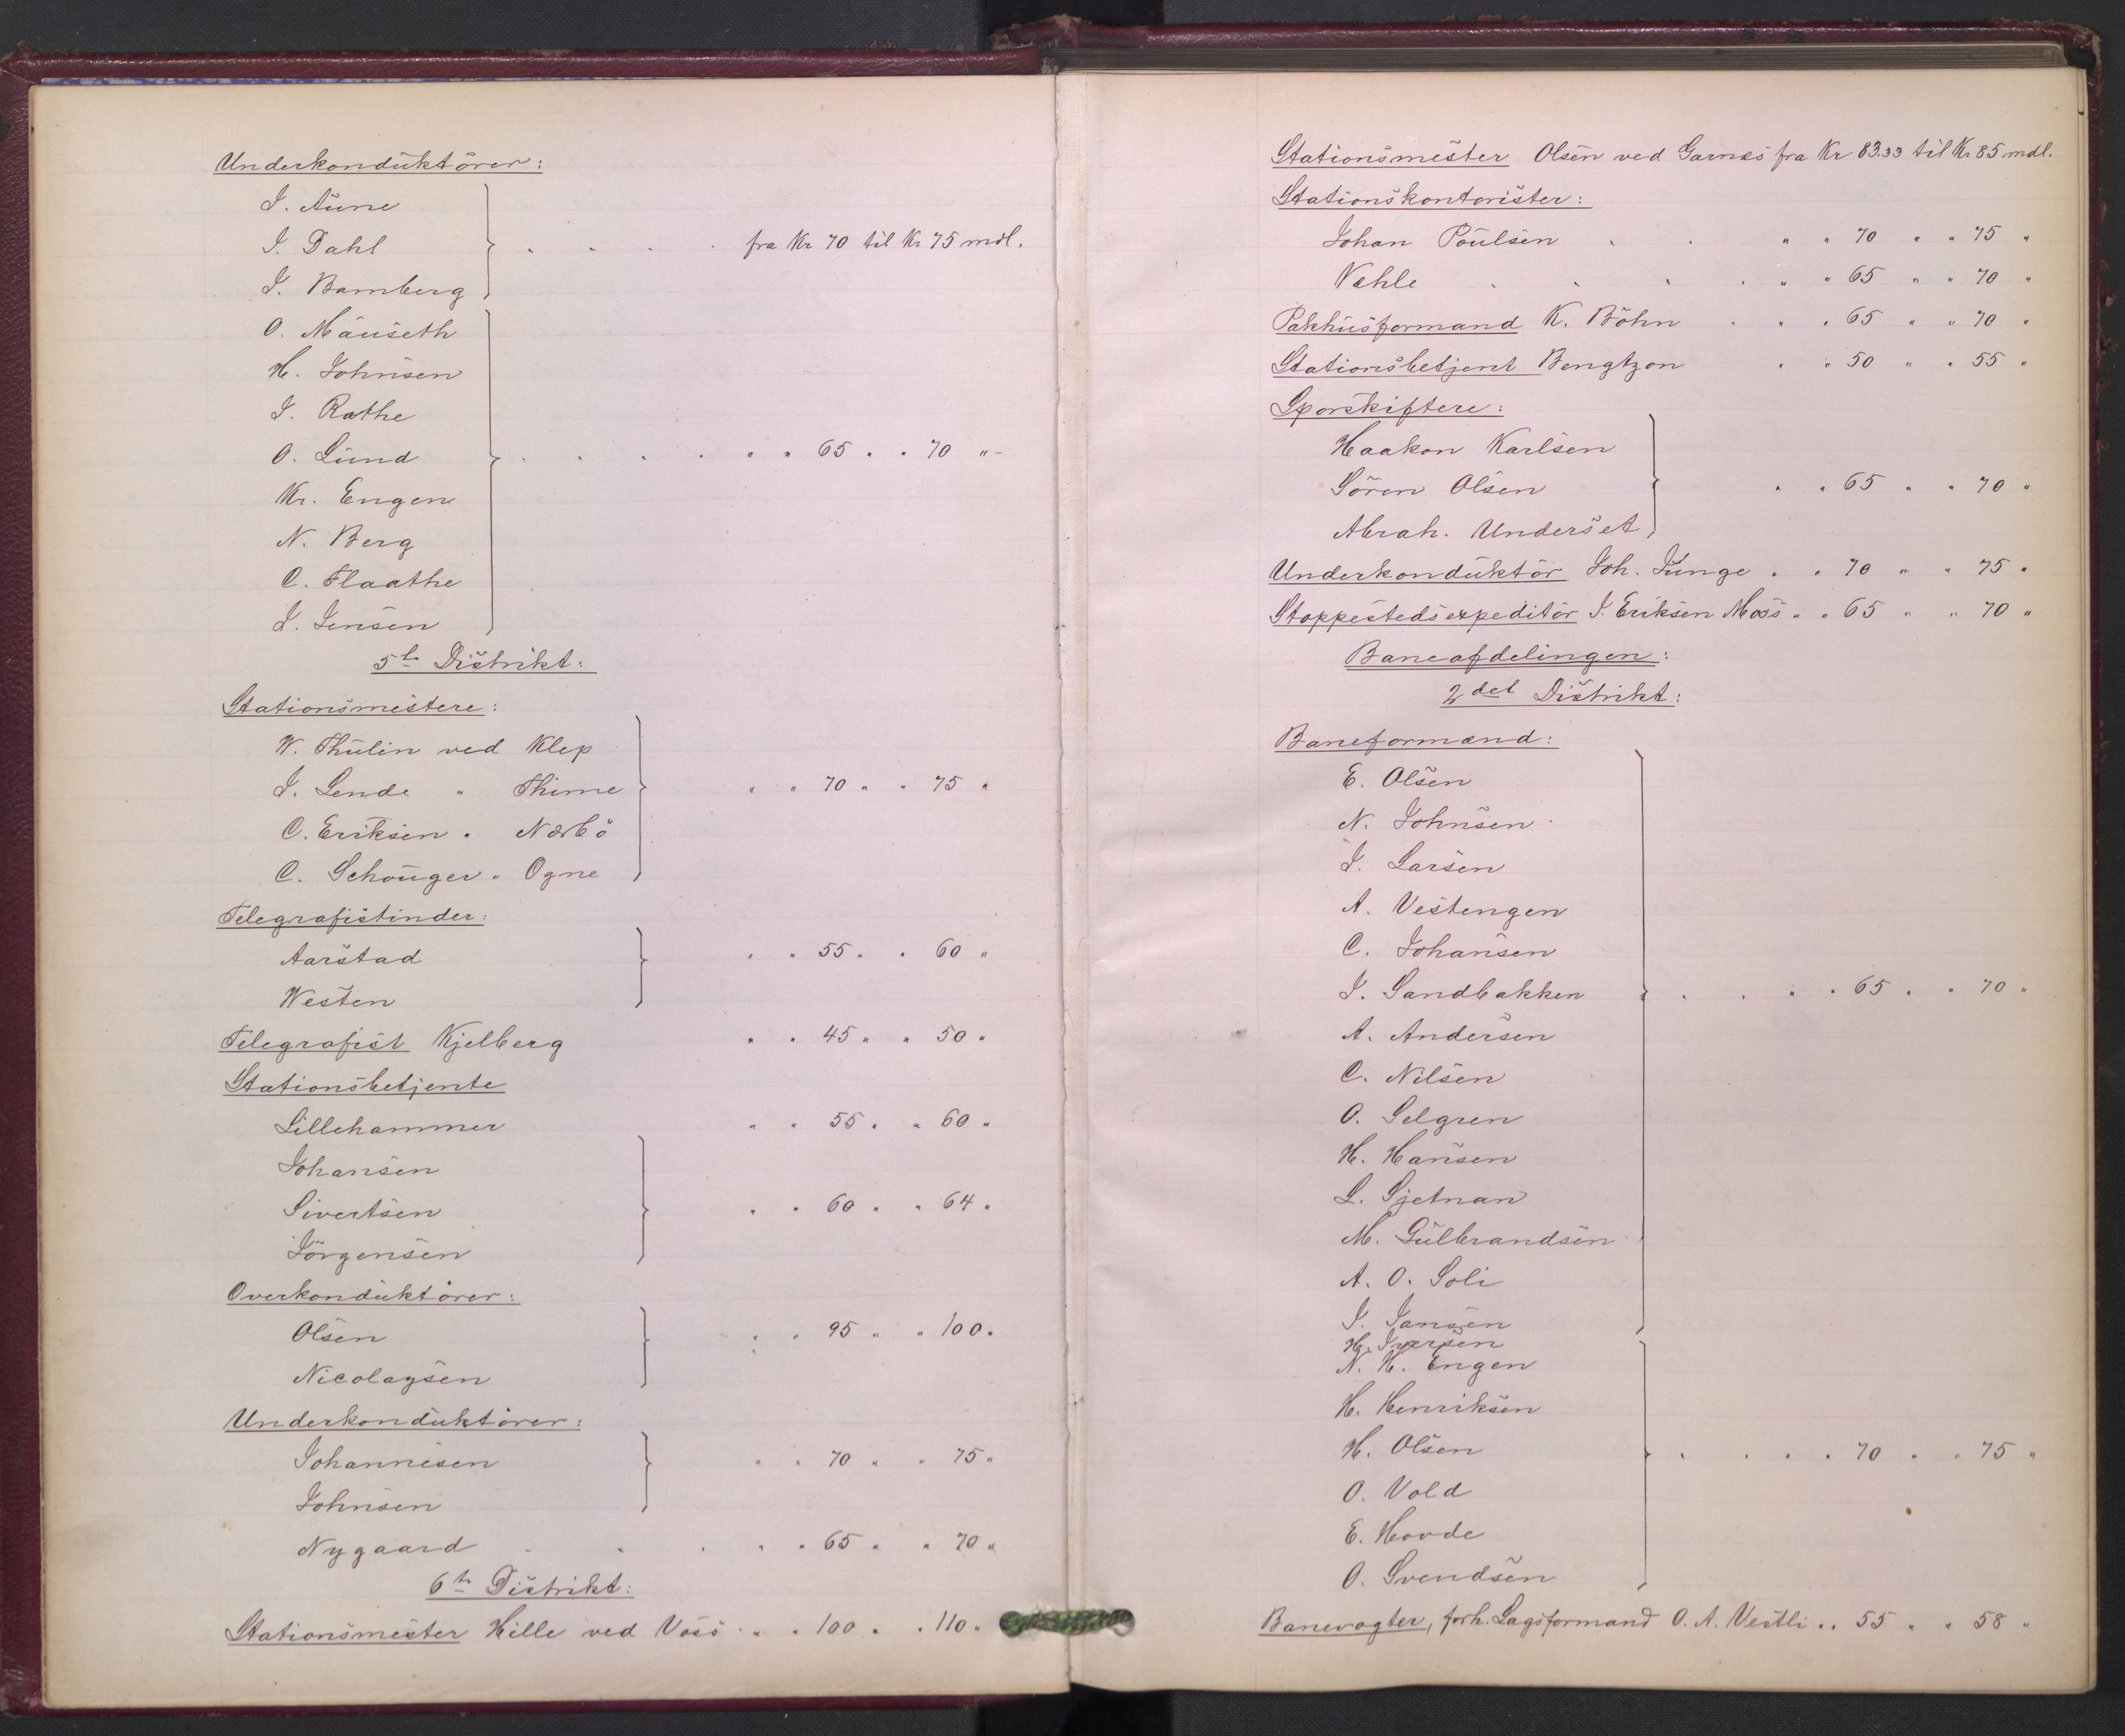 Underkonduktörer:
I. Aune
I. Dahl . . . . fra Kr 70 til Kr 75 mdl.
I. Bamberg
O. Mauseth
H. Johnsen
I. Rathe
O. Lund . . . . " " 65 " " 70 "
Kr. Engen
N. Berg
C. Flaathe
I. Jensen
5te Distrikt:
Stationsmestere:
W. Thulin ved Klep
I. Lende " Thime " " 70 " " 75 "
C. Eriksen " Nærbö
C. Schouger " Ogne
Telegrafistinder:
Aarstad " " 55 " " 60 "
Westen
Telegrafist Kjelberg " " 45 " " 50 "
Stationsbetjente
Lillehammer " " 55 " " 60 "
Johansen
Sivertsen " " 60 " " 64 "
Jörgensen
Overkonduktörer:
Olsen " " 95 " " 100 "
Nicolaysen
Underkonduktörer:
Johannesen " " 70 " " 75 "
Johnsen
Nygaard . . . " " 65 " " 70 "
6te Distrikt:
Stationsmester Hille ved Voss . " " 100 " " 110 "
Stationsmester Olsen ved Garnæs fra Kr 83.33 til Kr 85 mdl.
Stationskontorister:
Johan Poulsen . . " " 70 " " 75 "
Næhle . . . . " " 65 " " 70 "
Pakhusformand K. Böhn . " " 65 " " 70 "
Stationsbetjent Bengtzon " " 50 " " 55 "
Sporskiftere:
Haakon Karlsen
Sören Olsen " " 65 " " 70 "
Abrah. Underset
Underkonduktör Joh. Junge " " 70 " " 75 "
Stoppestedsexpeditör I. Eriksen Moss " " 65 " " 70 "
Baneafdelingen:
2det Distrikt:
Baneformænd:
E. Olsen
N. Johnsen
I. Larsen
A. Vestengen
C. Johansen
I. Sandbakken . . " " 65 " " 70 "
A. Andersen
C. Nilsen
O. Selgren
H. Hansen
L. Sjetnan
M. Gulbrandsen
A. O. Soli
I. Jansen
H. Iversen
N. H. Engen
H. Henriksen
H. Olsen . . " " 70 " " 75 "
O. Vold
E. Hovde
O. Svendsen
Banevogter, forh. Lagsformand O. A. Vestli " " 55 " " 58 "